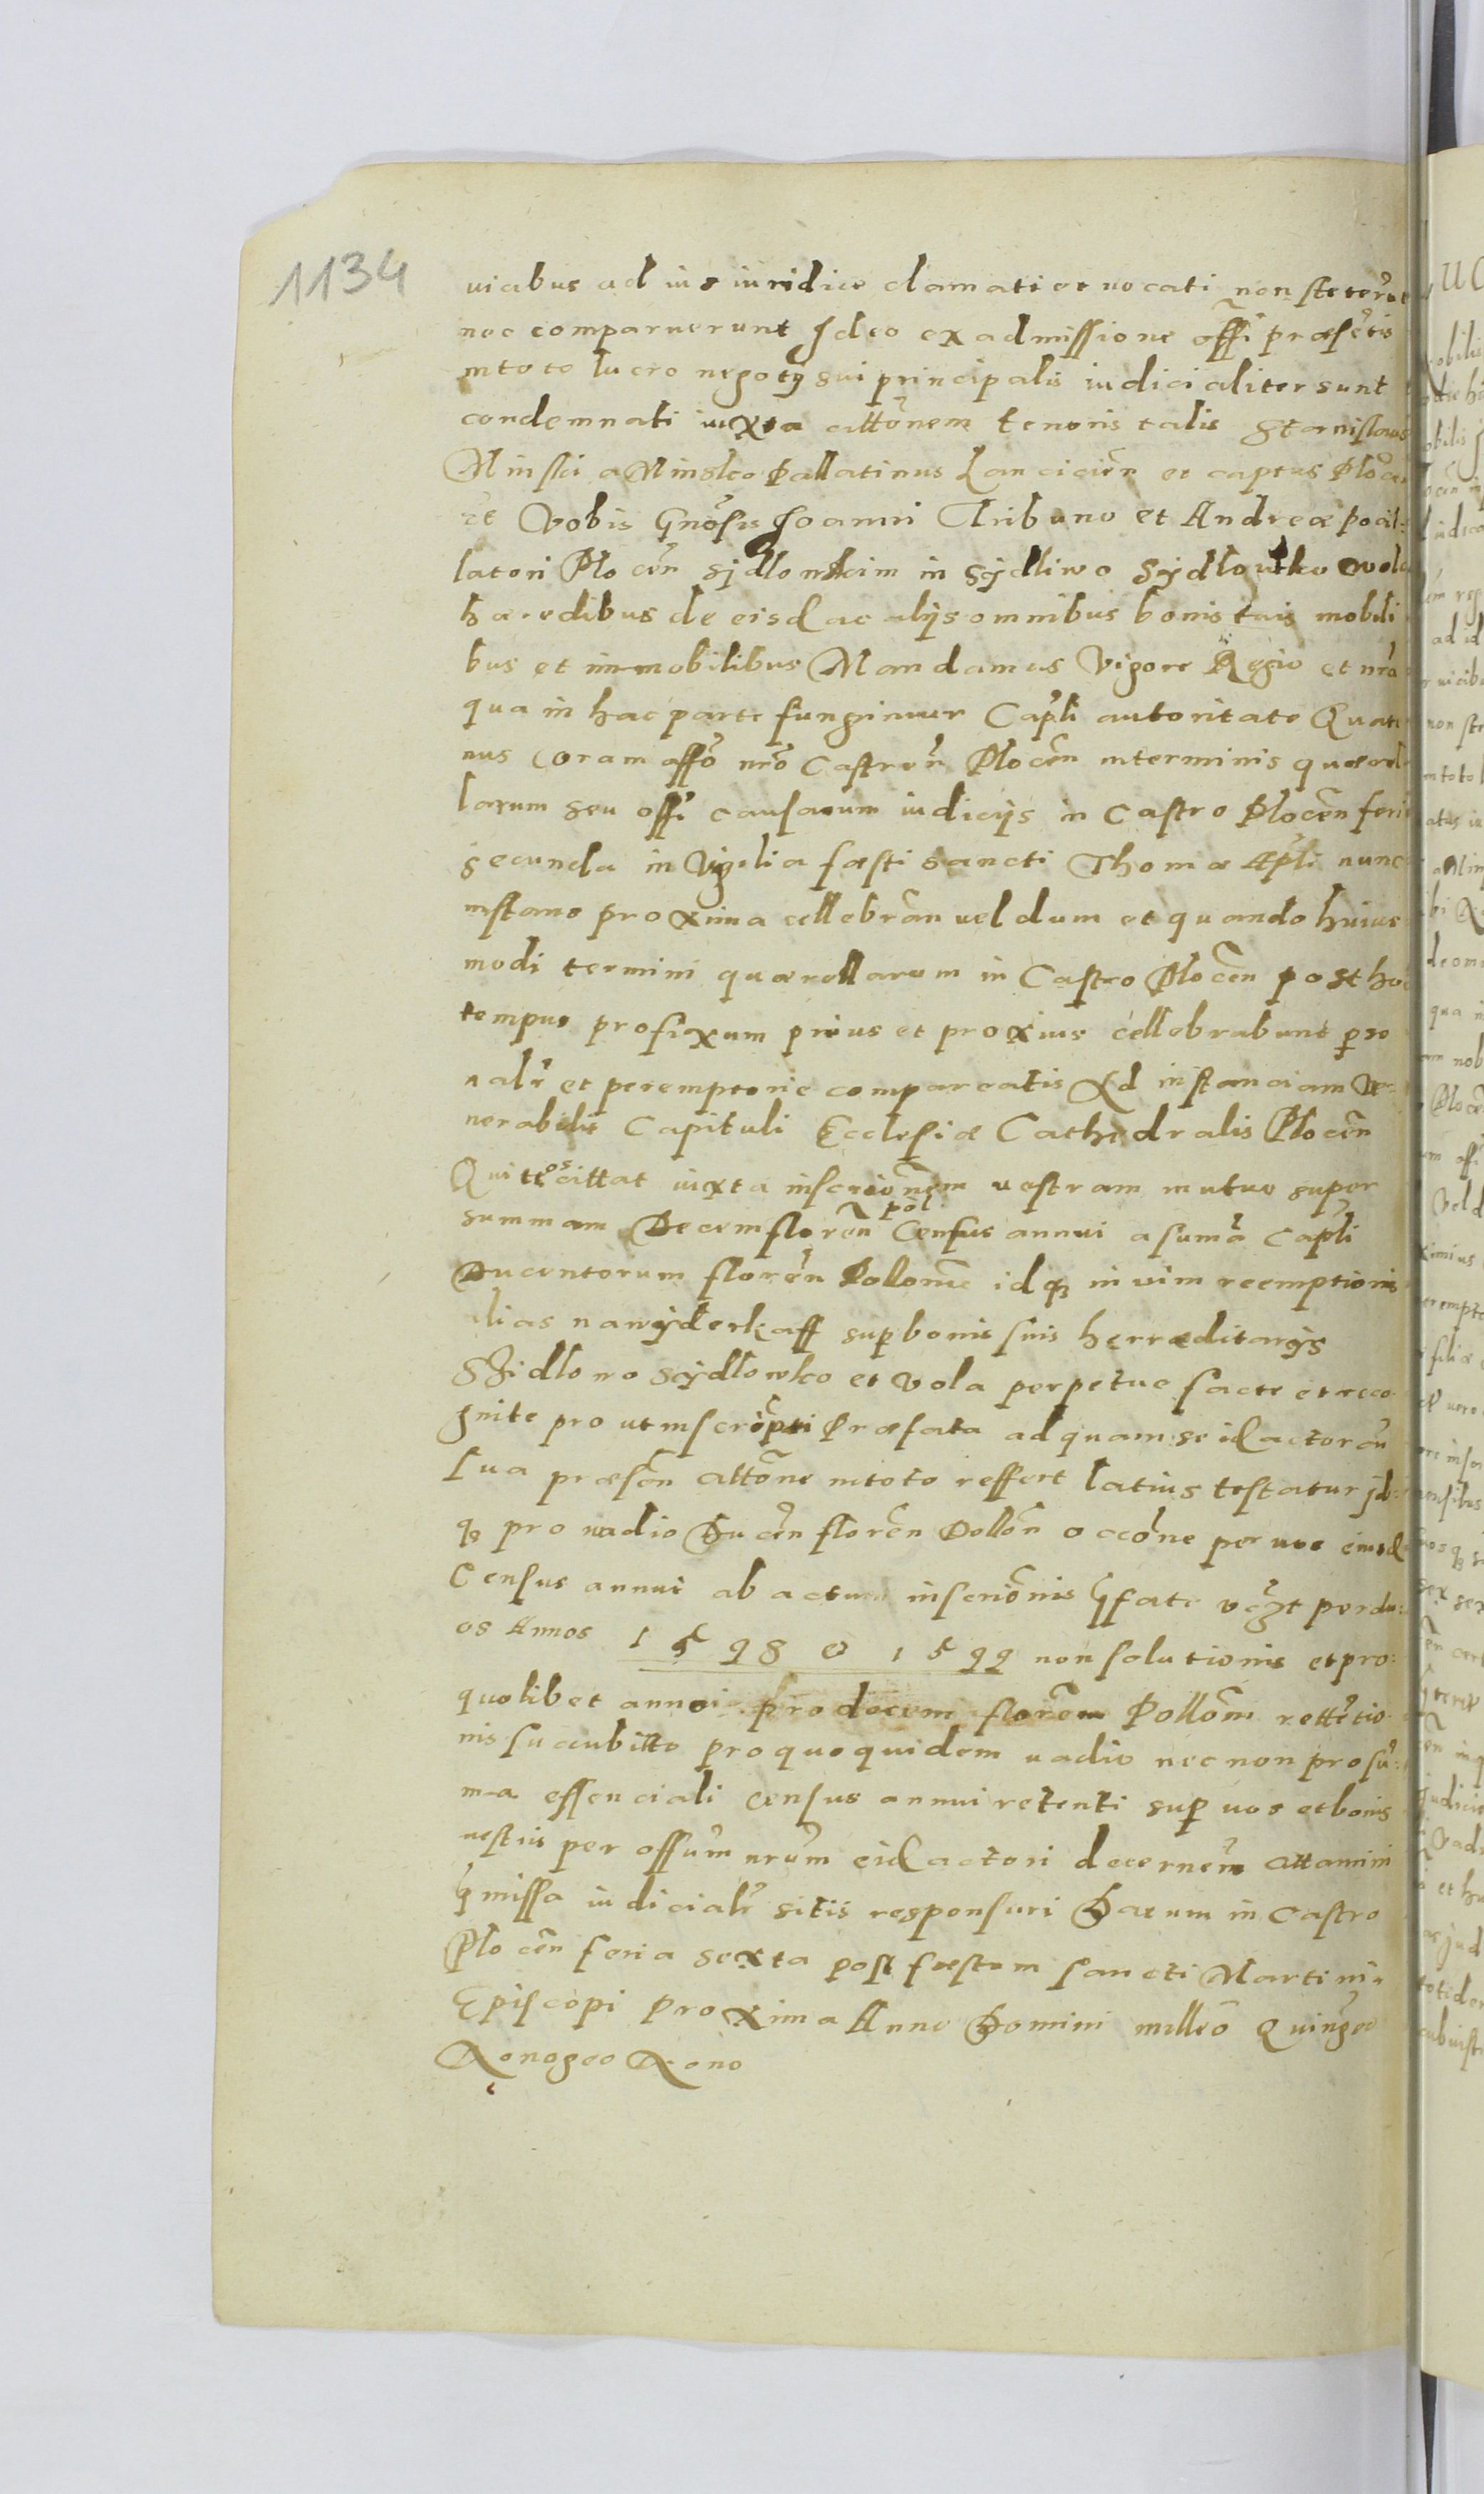 1134
uicibus ad ius iuridice clamati et uocati non steterūt
nec comparuerunt Ideo ex admissione offi præsētis
in toto lucro negotÿ sui principalis iudicialiter sunt
condemnati iuxta attōnem tenoris talis Stanislaus
Minski a Minsko Pallatinus Lancicien̄ et captus Plocen
Vobis Gnōsis Joanni Tribuno et Andreæ pocil:
latori Plocen̄ Sÿdlowskim in Sÿdliwo Sÿdlowko Vola
hæredibus de eisd ac alÿs omnibus bonis tuis mobili
bus et immobilibus Mandamus Vigore Regio et nr̄a
qua in hac parte fungimur Cap̄li autoritate Quate
nus coram offō nrō Castren̄ Plocēn in terminis quærel
larum seu offi causarum iudicÿs in Castro Plocēn feria
secunda in Vigilia fæsti sancti Thomæ Apl̄i nunc
instans proxima cellebrān uel dum et quando huius
modi termini quærellarum in Castro Plocēn post hoc
tempus profixum prius et proxius cellebrabunt perso
nalr̄ et peremptorie compareatis Ad instanciam Ve
nerabilis Capituli Ecclesiæ Cathedralis Plocēn
Qui te os cittat iuxta inscriōnem uestram mutuo super
summam Decem florēn pol Census annui a sumā Capl̄i
Ducentorum florēn Polonīe idq₃ in vim reemptionis
alias na wÿderkaff sup bonis suis herræditarÿs
SÿIdlowo Sÿdlowko et Vola perpetue facte et reco
gnite pro ut inscrip̄ti Præfata ad quam se id actor āu
sua præsēn attōne in toto reffert latius testatur id:
q₃ pro uadio Ducēn florēn Pollōn occōne per uos eiusd
Census annui ab actu inscriōnis p̄fate vc̄zt per du:
os Annos 1598 & 1599 non solutionis et pro:
quolibet anno pro decem florēn Pollōni rettētio
nis succubitto pro quo quidem uadio nec non pro sū:
ma essenciali census annui retenti sup uos et bonis
uestris per offūm nrūm eid actori decernēm attamini
p̄missa iudicialr̄ sitis responsuri Datum in Castro
Plocēn feria sexta post fæstum sancti Martini
Episcopi proxima Anno Domini milleō Quingēo
Nonogeo Nono